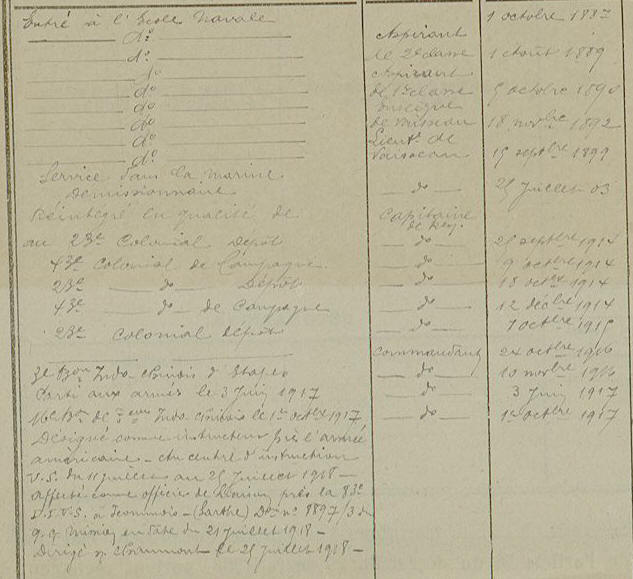 Entré à l'École Navale 1 octobre 1887
d° Aspirant
d° de 2e classe 1 août 1889
d° Aspirant
d° de 1e classe 5 octobre 1890
d° Enseigne
d° de vaisseau 18 novbre 1892
d° Lieut. de
d° Vaisseau 15 septbre 1899
Service dans la marine
Démissionnaire do 25 Juillet 03
Réintégré en qualité de Capitaine
de Rés.
au 23e Colonial Dépôt do 25 septbre 1914
43e Colonial de Campagne do 9 octbre 1914
23e do Dépôt do 18 octbre 1914
43e do de Campagne do 12 décbre 1914
23e Colonial dépôt do 1 octbre 1915
Commandant 24 octbre 1916
3e Bon Indo-chinois d'Etapes do 10 novbre 1916
Parti aux armées le 3 Juin 1917 do 3 Juin 1917
16e Bon de Indo-chinois le 1er octbre 1917 do 1er octbre 1917
Désigné comme instructeur près l'armée
américaine - au centre d'instruction
U.S. du 11 juillet au 25 Juillet 1918 -
affecté comme officier de Liaison près la 83e
D.I.U.S. à (Sarthe) n° 8897/3 du
en date du 21 juillet 1918 -
Dirigé Chaumont le 25 juillet 1918 -